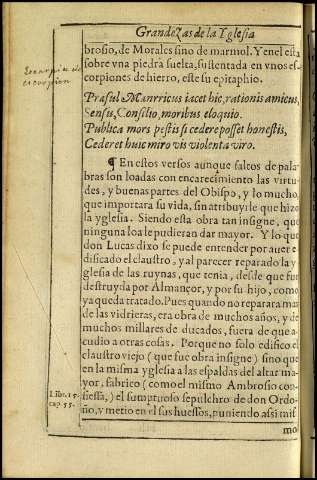 Grandezas de la Yglesia
brosio, de Morales sino de marmol. Y en el esta
sobre vna piedra suelta, sustentada en vnos es-
corpiones de hierro, este su epitaphio.
Præsul Manrricus iacet hic, rationis amicus,
Sensu, Consilio, moribus eloquio.
Publica mors pestis si cedere posset honestis,
Cederet huic miro vis violenta viro.
¶ En estos versos aunque faltos de pala
bras son loadas con encarecimiento las virtu-
des, y buenas partes del Obispo, y lo mucho
que importara su vida, sin atribuyrle que hizo
la yglesia. Siendo esta obra tan insigne, que
ninguna loa le pudieran dar mayor. Y lo que
don Lucas dixo se puede entender por auer e
dificado el claustro, y al parecer reparado la y
glesia de las ruynas, que tenia, desde que fue
destruyda por Almançor, y por su hijo, como
ya queda tratado. Pues quando no reparara mas
de las vidrieras, era obra de muchos años, y de
muchos millares de ducados, fuera de que a-
cudio a otras cosas. Porque no solo edifico el
claustro viejo (que fue obra insigne) sino que
en la misma yglesia a las espaldas del altar ma
yor, fabrico (como el mismo Ambrosio con-
fiessa,) el sumptuoso sepulchro de don Ordo-
Libr. 15.
cap. 55.
ño, y metio en el sus huessos, puniendo assi mis
mo